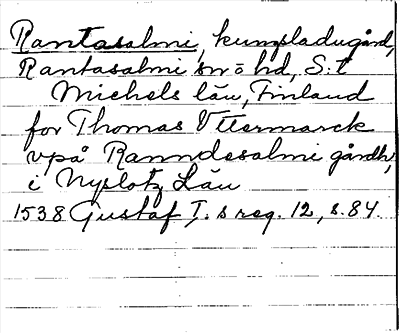 Rantasalmi, kungsladugård,
Rantasalmi sn o hd, S:t
Michels län, Finland
for Thomas Vttermarck
vpå Ranndesalmi gårdh,
i Nyslotz Län
1538 Gustaf I:s reg. 12, s. 84.